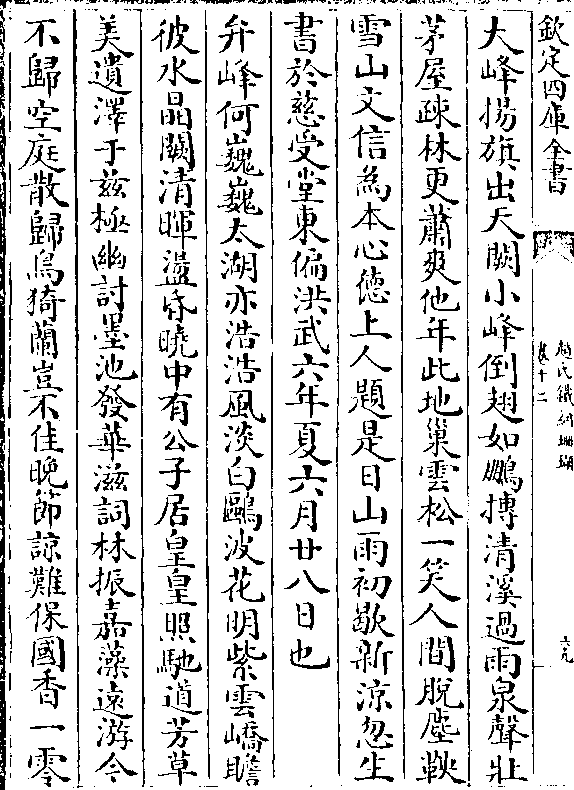 欽定四庫全書
趙氏鐵網珊瑚
卷十二
六九
大峰揚旗出天闕小峰倒翅如鵬摶清溪過雨泉聲壯
茅屋疎林更蕭爽他年此地巢雲松一笑人間脫塵鞅
雪山文信為本心徳上人題是日山雨初歇新涼忽生
書於慈受堂東偏洪武六年夏六月廿八日也
弁峰何巍巍太湖亦浩浩風淡白鷗波花明紫雲嶠瞻
彼水晶闕清暉盪昏曉中有公子居皇皇照馳道芳草
美遺澤于兹極幽討墨池發華滋詞林振嘉藻逺游今
不歸空庭散歸鳥猗蘭豈不佳晚節諒難保國香一零